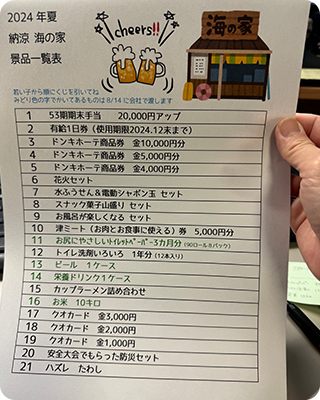 2024年夏
納涼 海の家
景品一覧表
cheers!!
海の家
若い子から順にくじを引いてね
みどり色の字でかいてあるものは 8/14 に会社で渡します
1 53期期末手当 20,000円アップ
2 有給1日券（使用期限2024.12末まで）
3 ドンキホーテ商品券 金10,000円分
4 ドンキホーテ商品券 金5,000円分
5 ドンキホーテ商品券 金4,000円分
6 花火セット
7 水ふうせん＆電動シャボン玉 セット
8 スナック菓子山盛り セット
9 お風呂が楽しくなる セット
10 津ミート（お肉とお食事に使える）券 5,000円分
11 お尻にやさしいﾄｲﾚｯﾄﾍﾟｰﾊﾟｰ3カ月分（90ロール8パック）
12 トイレ洗剤いろいろ 1年分（12本入り）
13 ビール 1ケース
14 栄養ドリンク1ケース
15 カップラーメン詰め合わせ
16 お米 10キロ
17 クオカード 金3,000円
18 クオカード 金2,000円
19 クオカード 金1,000円
20 安全大会でもらった防災セット
21 ハズレ たわし